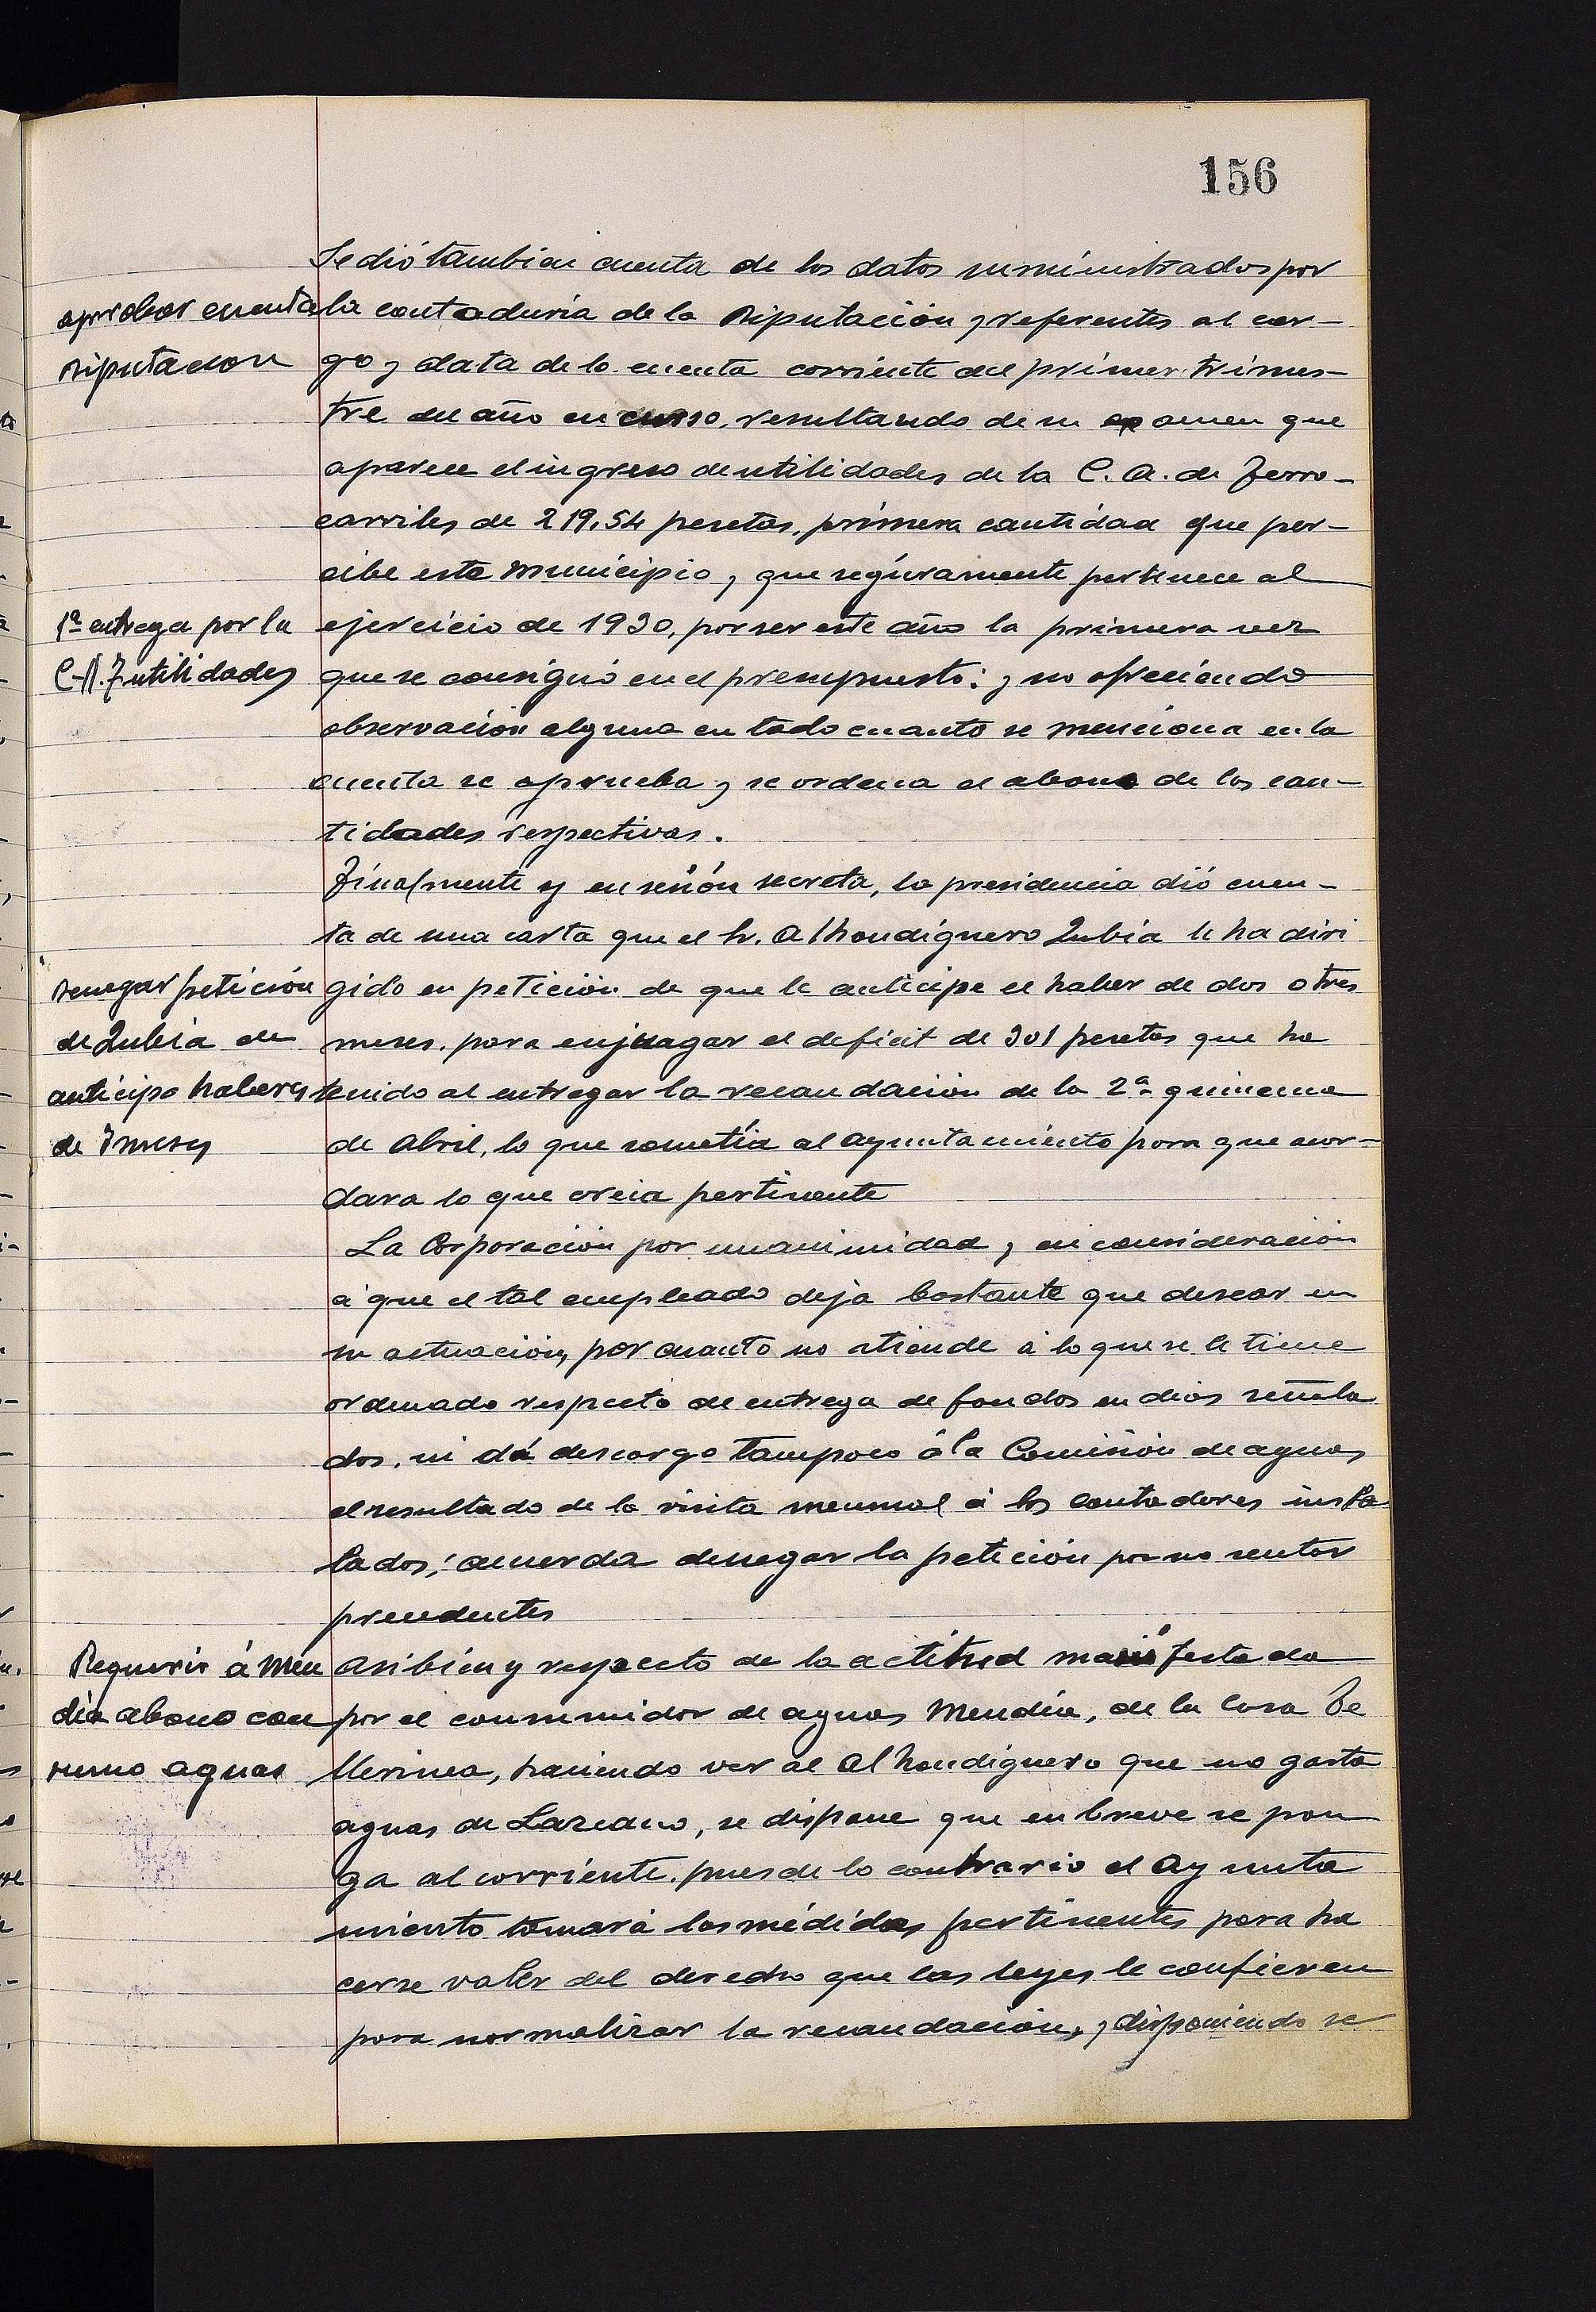 156
Se dió tambien cuenta de los datos suministrados por
aprobar cuenta
la contaduría de la Diputación y referentes al car-
Diputacion
go y data de la cuenta corriente del primer trimes-
tre del año en curso, resultando de su examen que
aparece el ingreso de utilidades de la C. A. de Ferro-
carriles de 219,54 pesetas, primera cantidad que per-
cibe este Municipio, y que seguramente pertenece al
1ª entrega por la
ejercicio de 1930, por ser este año la primera vez
C-A. F utilidades
que se consignó en el presupuesto: y no ofreciendo
observación alguna en todo cuanto se menciona en la
cuenta se aprueba y se ordena el abono de las can-
tidades respectivas.
Finalmente y en sesión secreta, la presidencia dió cuen-
ta de una carta que el Sr. Alhondiguero Zubia le ha diri
denegar petición
gido en petición de que le anticipe el haber de dos o tres
de Zubia de
meses, para enjuagar el deficit de 301 pesetas que ha
anticipo haberes
tenido al entregar la recaudación de la 2ª quincena
de 3 meses
de Abril, lo que sometía al Ayuntamiento para que acor-
dara lo que creia pertinente
La Corporación por unanimidad, y en consideración
á que el tal empleado deja bastante que desear en
su actuación, por cuanto no atiende á lo que se le tiene
ordenado respecto de entrega de fondos en dias señala
dos, ni dá descargo tampoco á la Comisión de aguas,
el resultado de la visita mensual á los contadores insta-
lados; acuerda denegar la petición por no sentar
precedentes
Requerir á Men
Asibien y respecto de la actitud manifestada
dia abono con
por el consumidor de aguas Mendía, de la Casa Te
sumo aguas
llerinea, haciendo ver al Alhondiguero que no gasta
aguas de Lazcano, se dispone que en breve se pon
ga al corriente, pues de lo contrario el Ayunta
miento tomará las médidas pertinentes para ha
cerse valer del derecho que las leyes le confieren
para normalizar la recaudación, y disponiendo se